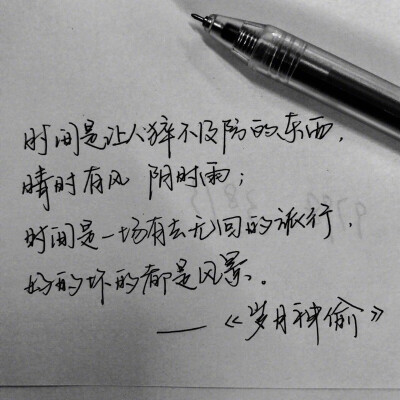 时间是让人猝不及防的东西，
晴时有风 阴时雨；
时间是一场有去无回的旅行，
好的坏的都是风景。
——《岁月神偷》